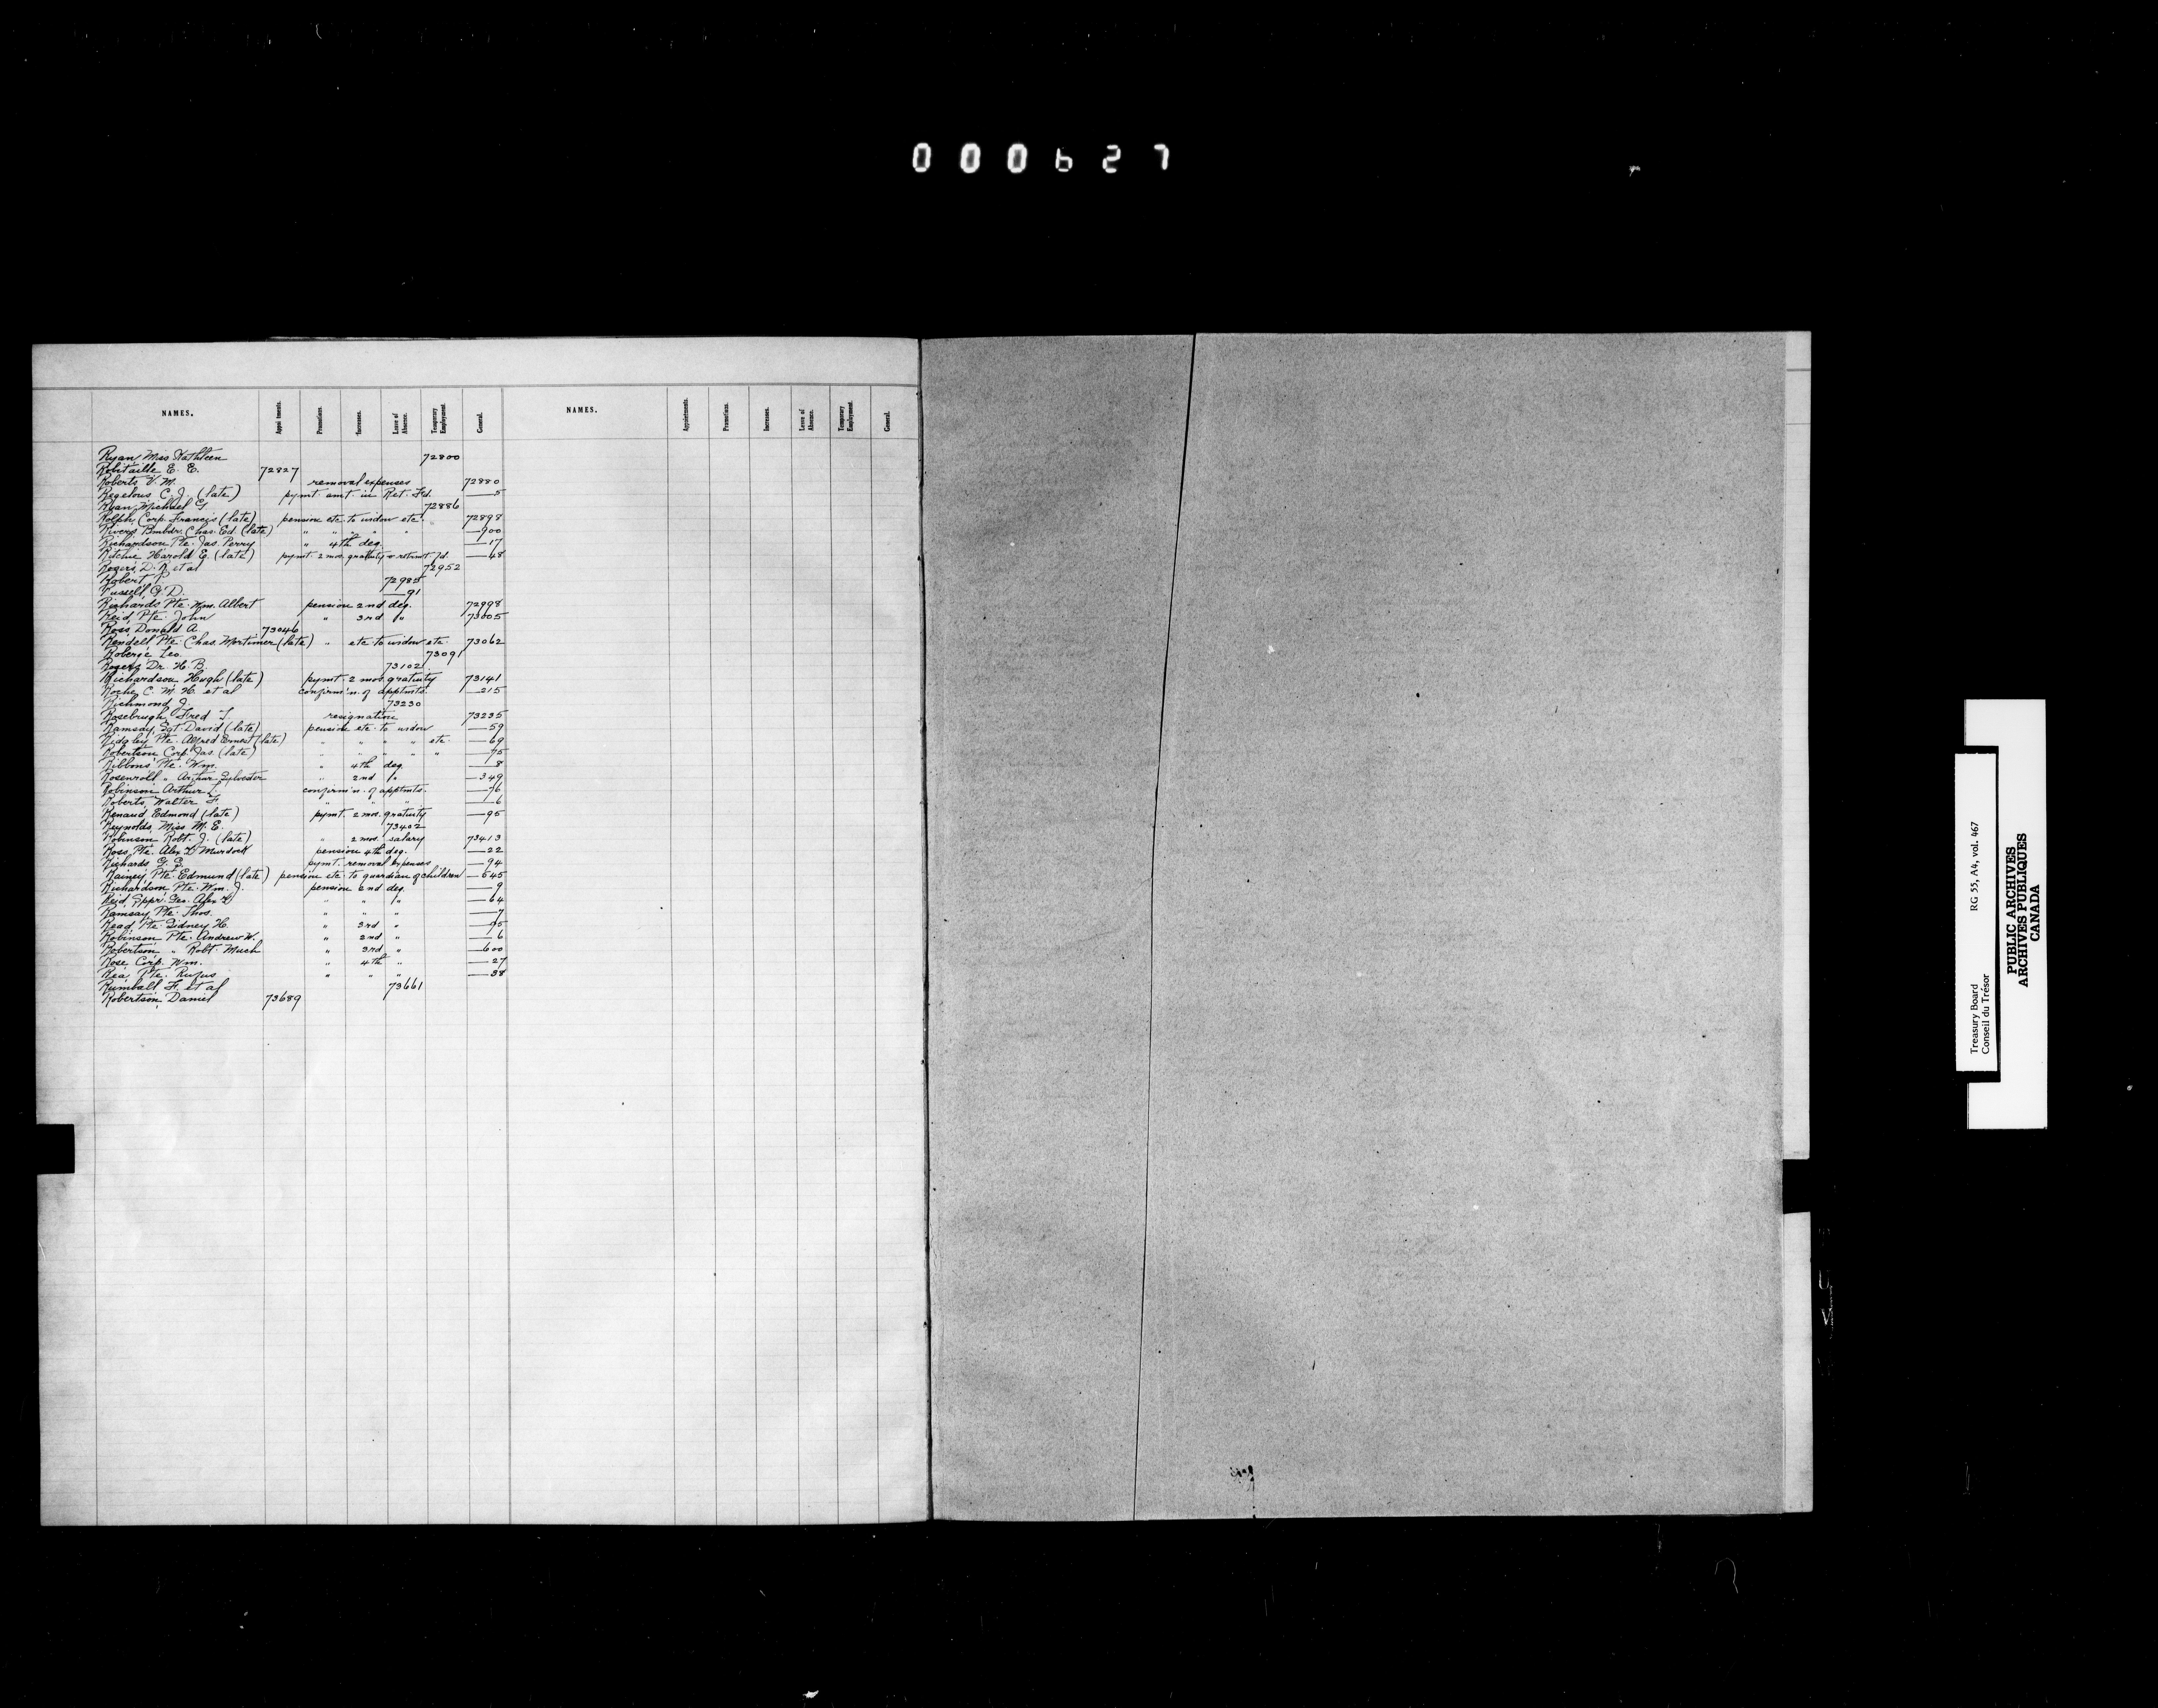 000627
NAMES. Appointments. Promotions. Increases. Leave of Absence. Temporary Employment. General. NAMES. Appointments. Promotions. Increases. Leave of Absence. Temporary Employment. General.
Ryan, Miss Kathleen 72800
Robitaille E. E. 72827
Roberts V. M. removal expenses 72880
Regelous C. J. (late) pymt. amt. in Ret. Fd. —5
Ryan, Michael G. 72886
Rolph, Corp. Francis (late) pension etc. to widow etc. 72898
Rivers Bmbdr. Chas. Ed. (late) " " " " —900
Richardson Pte. Jas. Perry " 4th deg. —17
Ritchie Harold E. (late) pymt. 2 mos. gratuity & retirmt. fd. —48
Rogers, D. R. et al 72952
Robert, P. 72985
Russell, G. D. —91
Richards Pte. Wm. Albert pension 2nd deg. 72998
Reid, Pte. John " 3rd " 73005
Ross, Donald A. 73046
Rendell Pte. Chas. Mortimer (late) " etc. to widow etc. 73062
Roberge Leo. 73091
Rogers Dr. H. B. 73102
Richardson, Hugh (late) pymt. 2 mos. gratuity 73141
Roche, C. M. H. et al confirm'n. of apptmts. —215
Richmond J. 73230
Rosebrugh, Fred resignation 73235
Ramsay, Sgt. David (late) pension etc. to widow —59
Ridgley Pte. Alfred Ernest (late) " " " " etc. —69
Robertson Corp. Jas. (late) " " " " " —75
Ribbons Pte. Wm. " 4th deg. —8
Rosenroll " Arthur Sylvester " 2nd " —349
Robinson Arthur L. confirm'n. of apptmts. —76
Roberts, Walter F. " " " —6
Renaud, Edmond (late) pymt. 2 mos. gratuity —95
Reynolds, Miss M. E. 73402
Robinson Robt. J. (late) " 2 mos. salary 73413
Ross, Pte. Alex Murdock pension 4th deg. —22
Richards G. S. pymt. removal expenses —94
Rainey, Pte. Edmund (late) pension etc. to guardian of children —545
Richardson, Pte. Wm. J. pension 2nd deg. —9
Reid, Sppr. Geo. Alex " " " —64
Ramsay, Pte. Thos. " " " —7
Read, Pte. Sidney H. " 3rd " —95
Robinson, Pte. Andrew W. " 2nd " —6
Robertson, " Robt. Much " 3rd " —600
Rose Corp. Wm. " 4th " —27
Rea, Pte. Rufus " " " —38
Rumball F. et al 73661
Robertson, Daniel 73689
Treasury Board RG 55, A4, vol. 467
Conseil du Trésor
PUBLIC ARCHIVES
ARCHIVES PUBLIQUES
CANADA